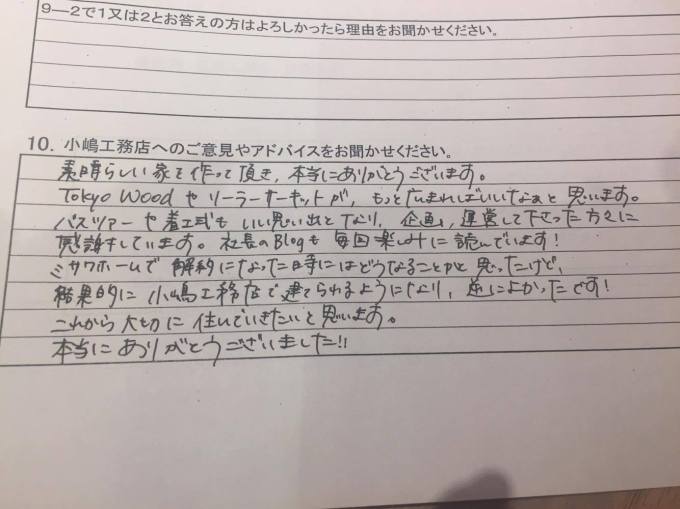 9―2で1又は2とお答えの方はよろしかったら理由をお聞かせください。
10. 小嶋工務店へのご意見やアドバイスをお聞かせください。
素晴らしい家を作って頂き、本当にありがとうございます。
Tokyo Woodやソーラーサーキットが、もっと広まればいいなぁと思います。
バスツアーや着工式もいい思い出となり、企画、運営して下さった方々に
感謝しています。社長のBlogも毎回楽しみに読んでいます!
ミサワホームで解約になった時にはどうなることかと思ったけど、
結果的に小嶋工務店で建てられるようになり、逆によかったです!
これから大切に住んでいきたいと思います。
本当にありがとうございました!!